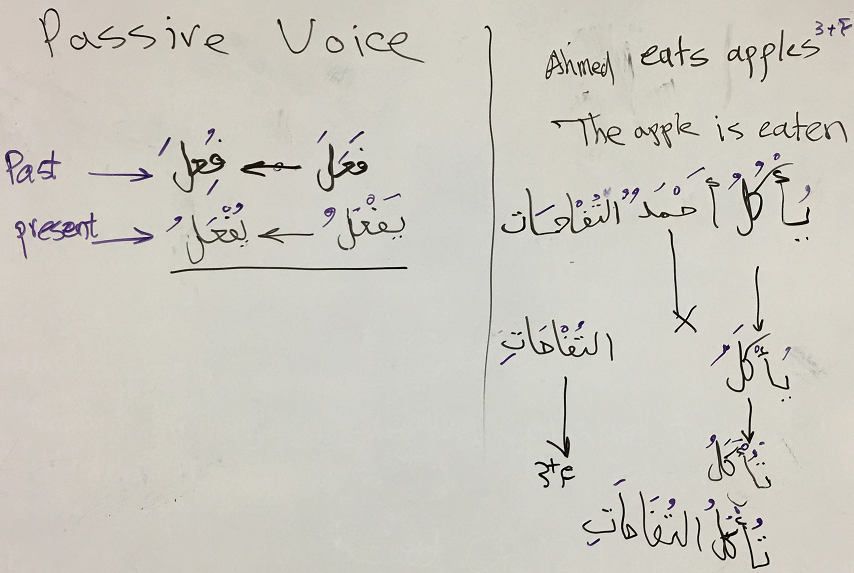 Passive Voice
Past → فُعِلَ ← فَعَلَ
present → يُفْعَلُ ← يَفْعَلُ
Ahmed eats apples 3+F
The apple is eaten
يَأْكُلُ أَحْمَدُ التُفْاحَات
التُفْاحَاتِ
يُأْكَلُ
3+F
تُأْكَلُ
تُأْكَلُ التُفَاحَاتِ